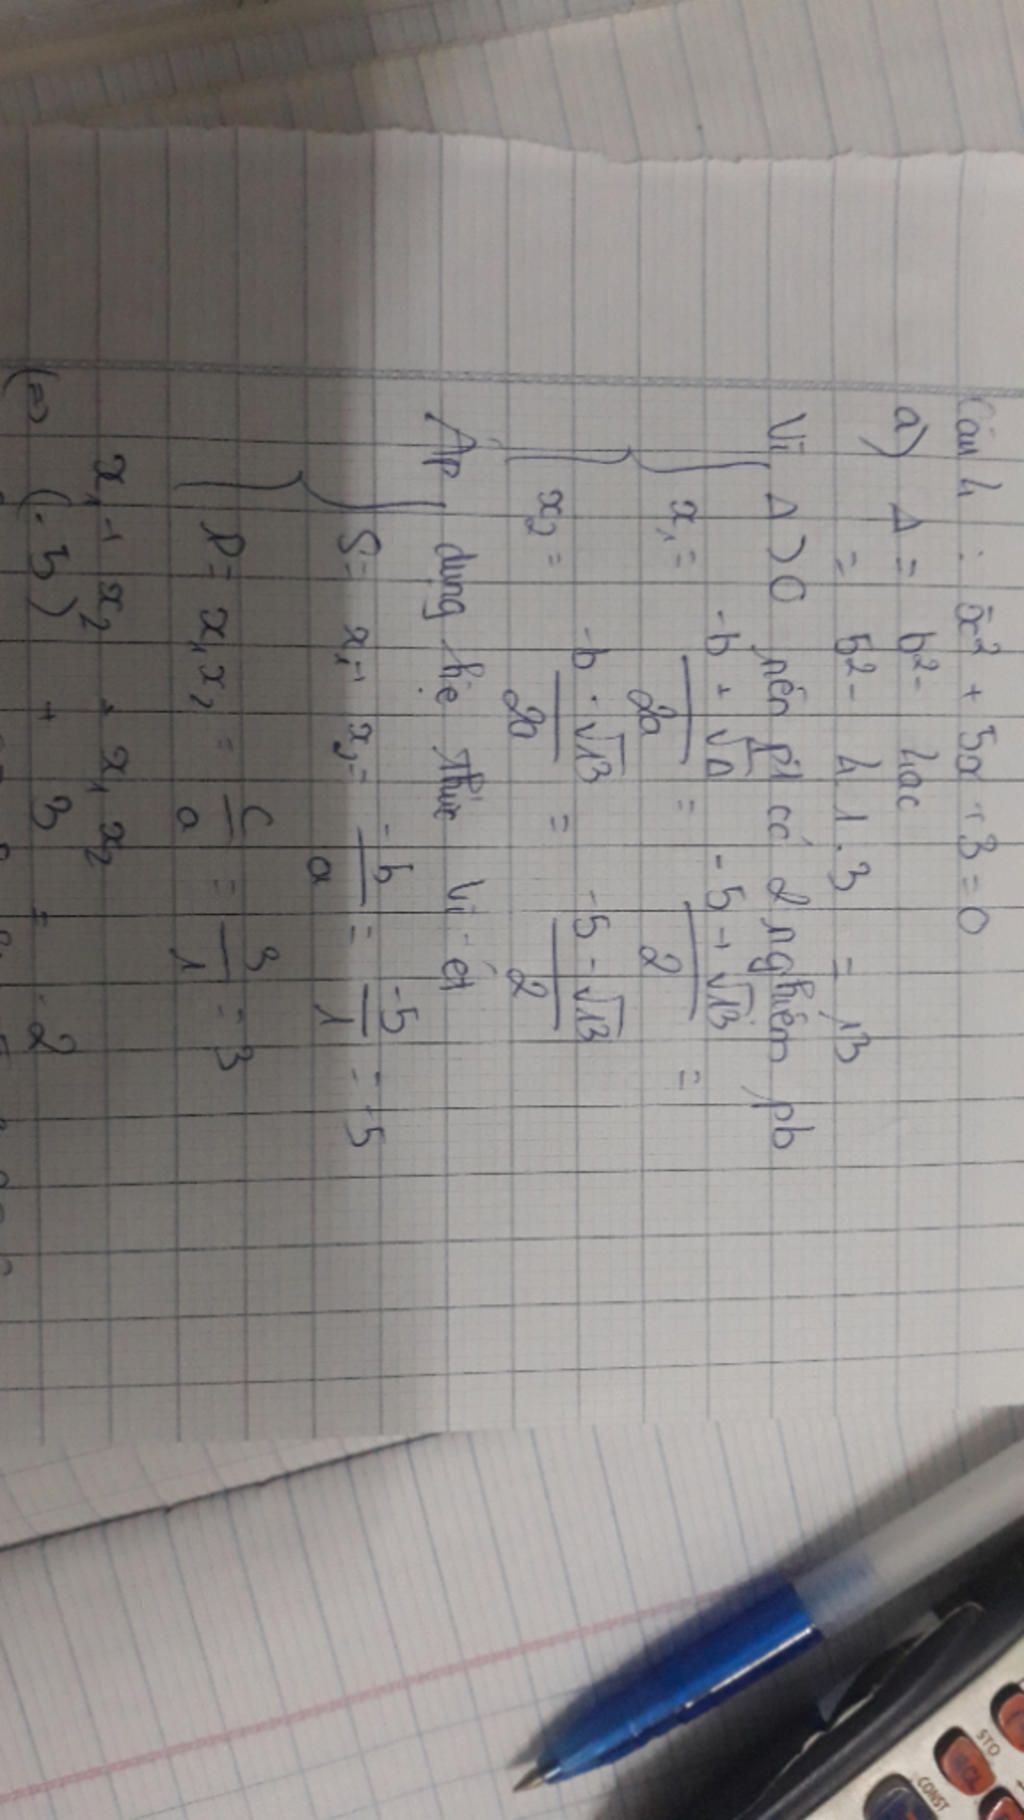 Câu 4 : x² + 5x + 3 = 0
a) Δ = b² - 4ac
= 5² - 4.1.3 = 13
Vì Δ > 0 nên pt có 2 nghiệm pb
x₁ = -b + √Δ / 2a = -5 + √13 / 2 =
x₂ = -b - √13 / 2a = -5 - √13 / 2
Áp dụng hệ thức Vi-ét
S = x₁ + x₂ = -b / a = -5 / 1 = -5
P = x₁x₂ = c / a = 3 / 1 = 3
x₁ + x₂ + x₁x₂
(=) (-5) + 3 = -2
STO
CONST